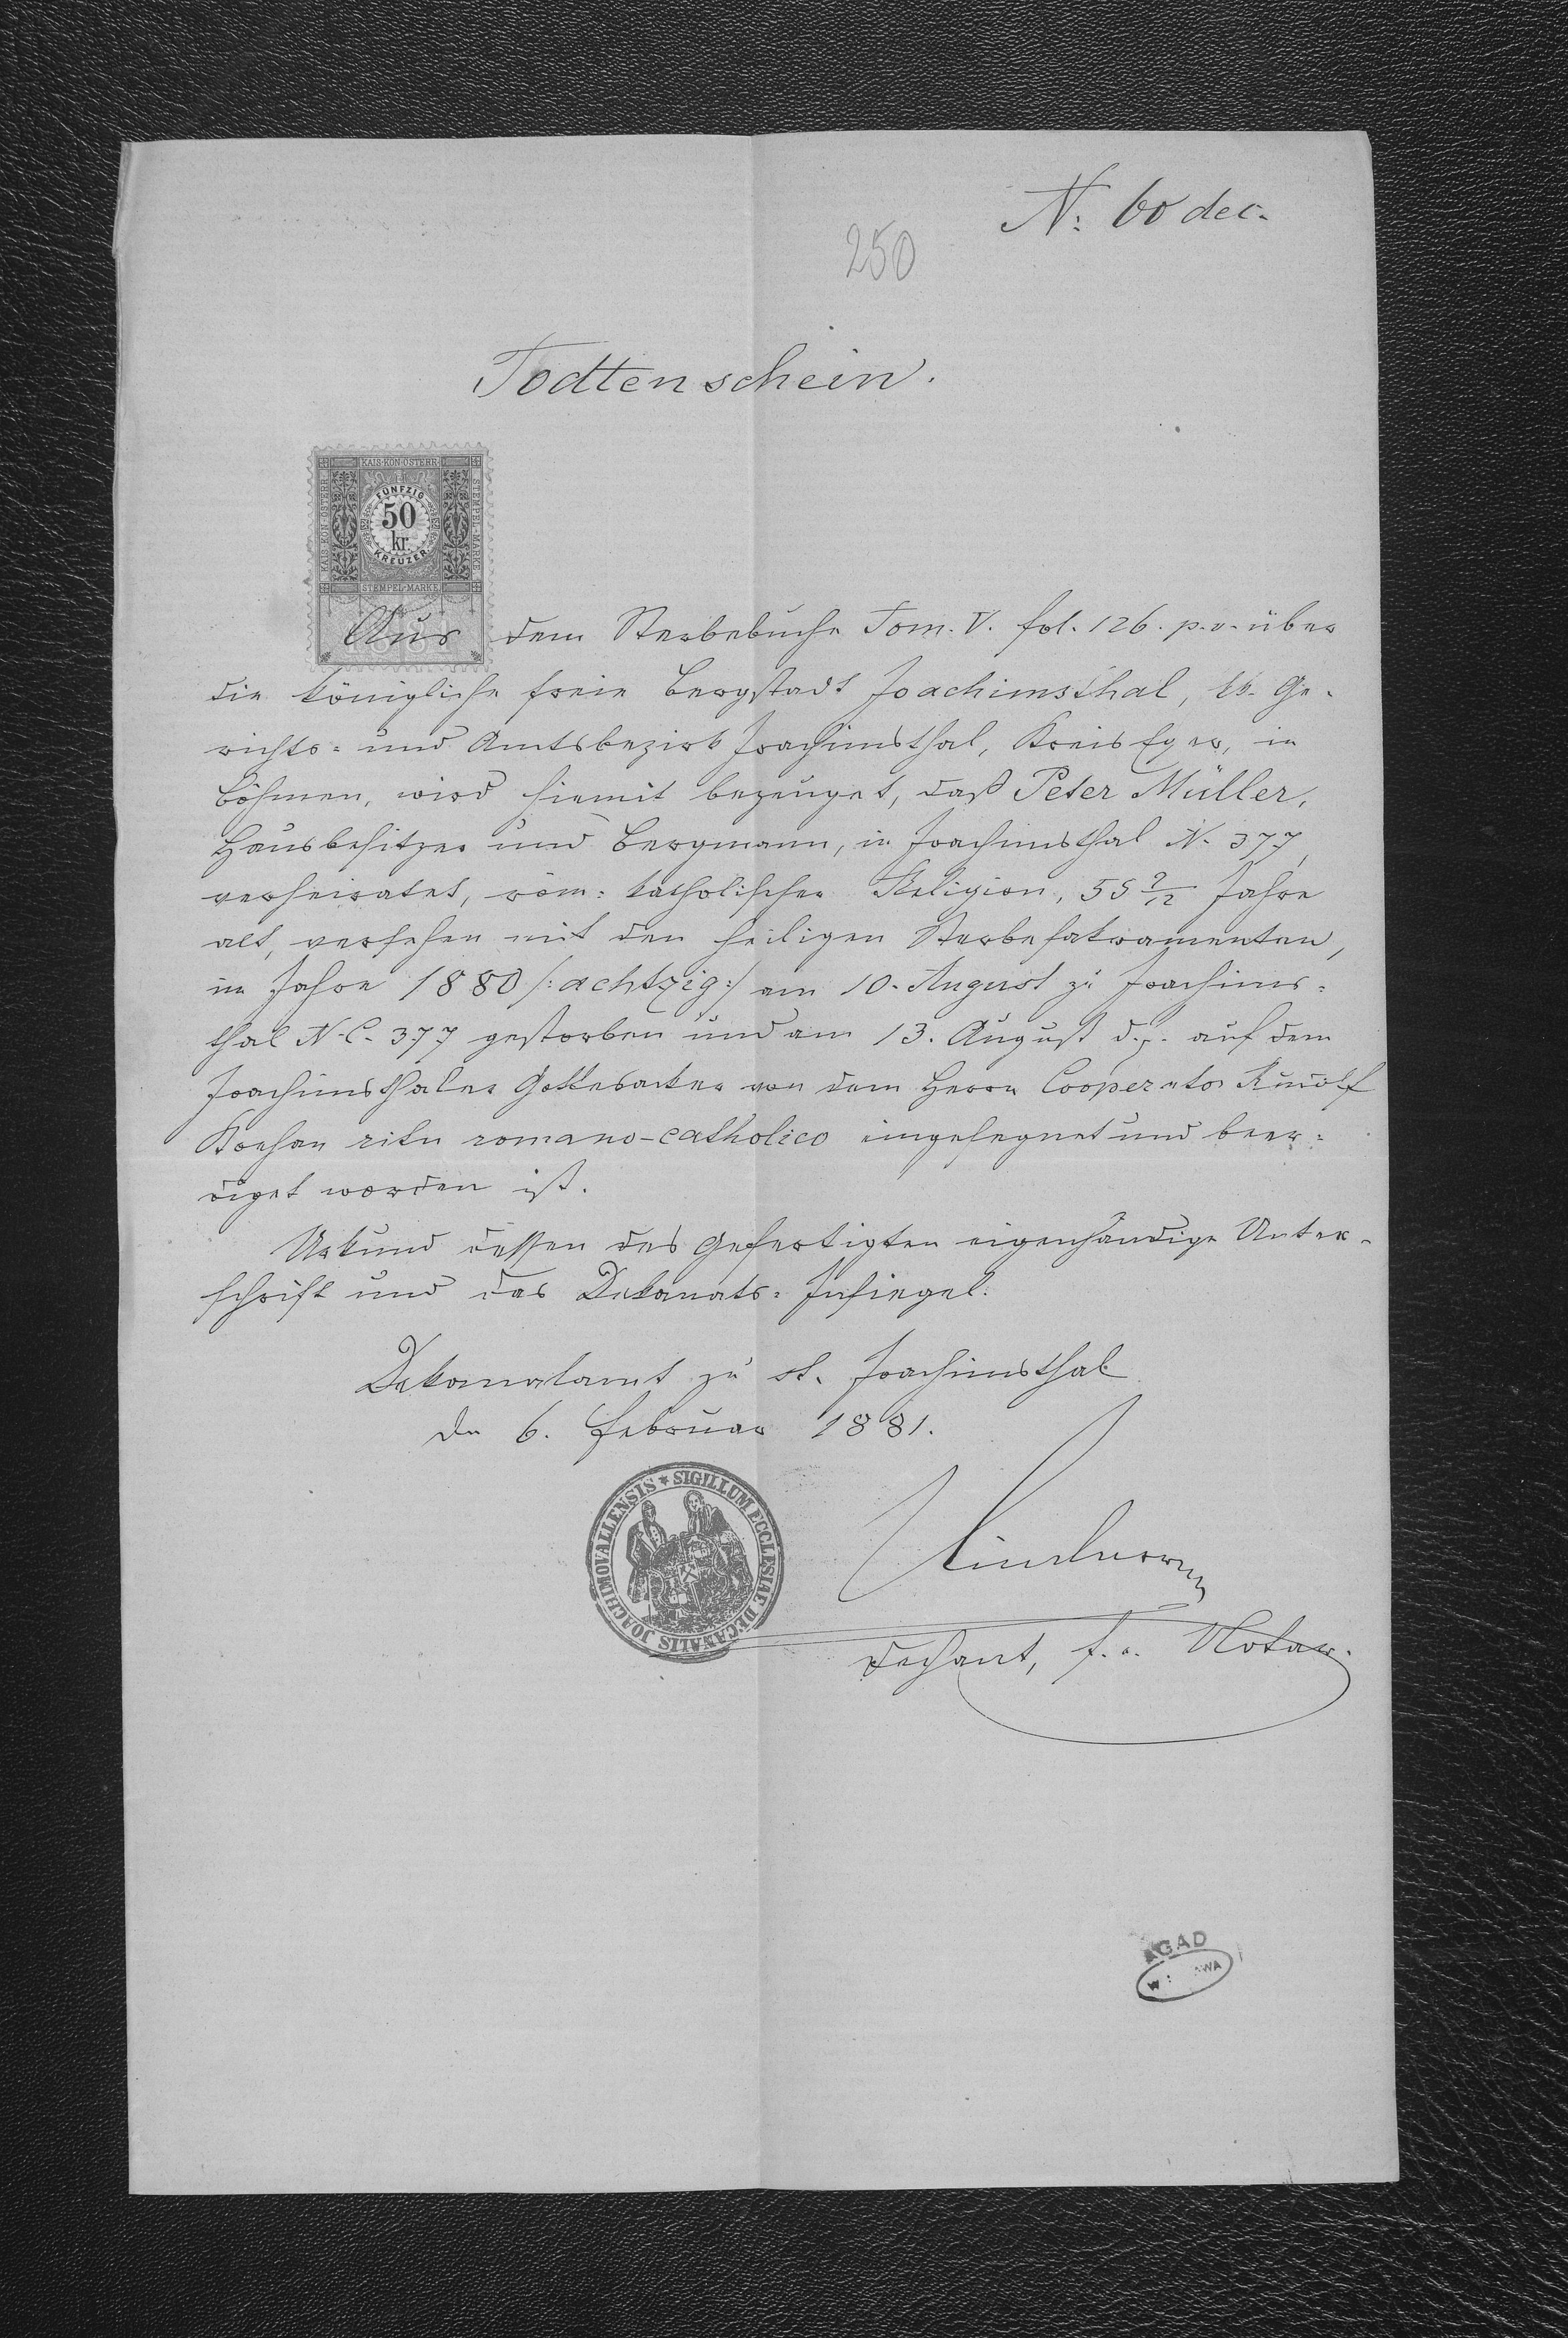 N: 60 dec.
250
Todtenschein.
KAIS. KÖN. ÖSTERR.
KAIS. KÖN. ÖSTERR.
STEMPEL-MARKE
FÜNFZIG
50
kr.
KREUZER
STEMPEL-MARKE
1881
Aus dem Sterbebuche Tom. V. fol. 126. p. v. über
die königliche freie Bergstadt Joachimsthal, kk. Ge-
richts= und Amtsbezirk Joachimsthal, Kreis Eger, in
Böhmen, wird hiemit bezeuget, daß Peter Müller,
Hausbesitzer und Bergmann, in Joachimsthal N. 377,
verheiratet, röm: katholischer Religion, 55 9/12 Jahre
alt, versehen mit den heiligen Sterbesakramenten,
im Jahre 1880 /: achtzig :/ am 10. August zu Joachims=
thal N. C. 377 gestorben und am 13. August d. J. auf dem
Joachimsthaler Gottesacker von dem Herrn Cooperator Rudolf
ritu romano-catholico eingesegnet und beer=
diget worden ist.
Urkund dessen des Gefertigten eigenhändige Unter-
schrift und das Dekanats= Insiegel.
Dekanalamt zu St. Joachimsthal
den 6. Februar 1881.
SIGILLUM ECCLESIAE DECANALIS JOACHIMOVALLENSIS
Dechant, f. e. Notar.
AGAD